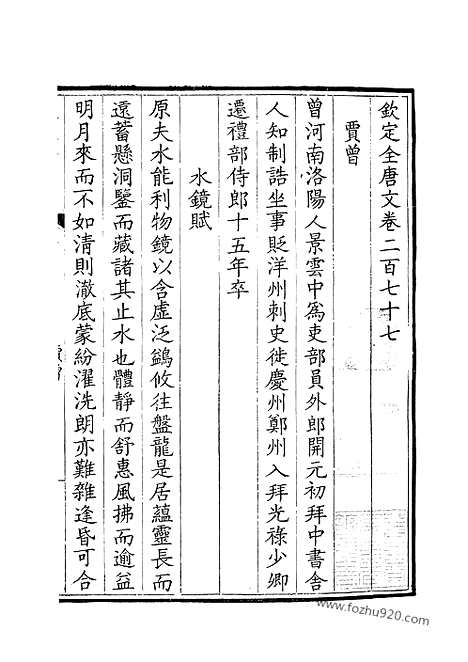 欽定全唐文卷二百七十七
賈曾
曾河南洛陽人景雲中爲吏部員外郎開元初拜中書舍
人知制誥坐事貶洋州刺史徙慶州鄭州入拜光祿少卿
遷禮部侍郎十五年卒
水鏡賦
原夫水能利物鏡以含虛泛鷁攸往盤龍是居蘊靈長而
遠蓄懸洞鑒而藏諸其止水也體靜而舒惠風拂而逾益
明月來而不如清則澈底蒙紛濯洗朗亦難雜逢昏可合
www.fozhu920.com